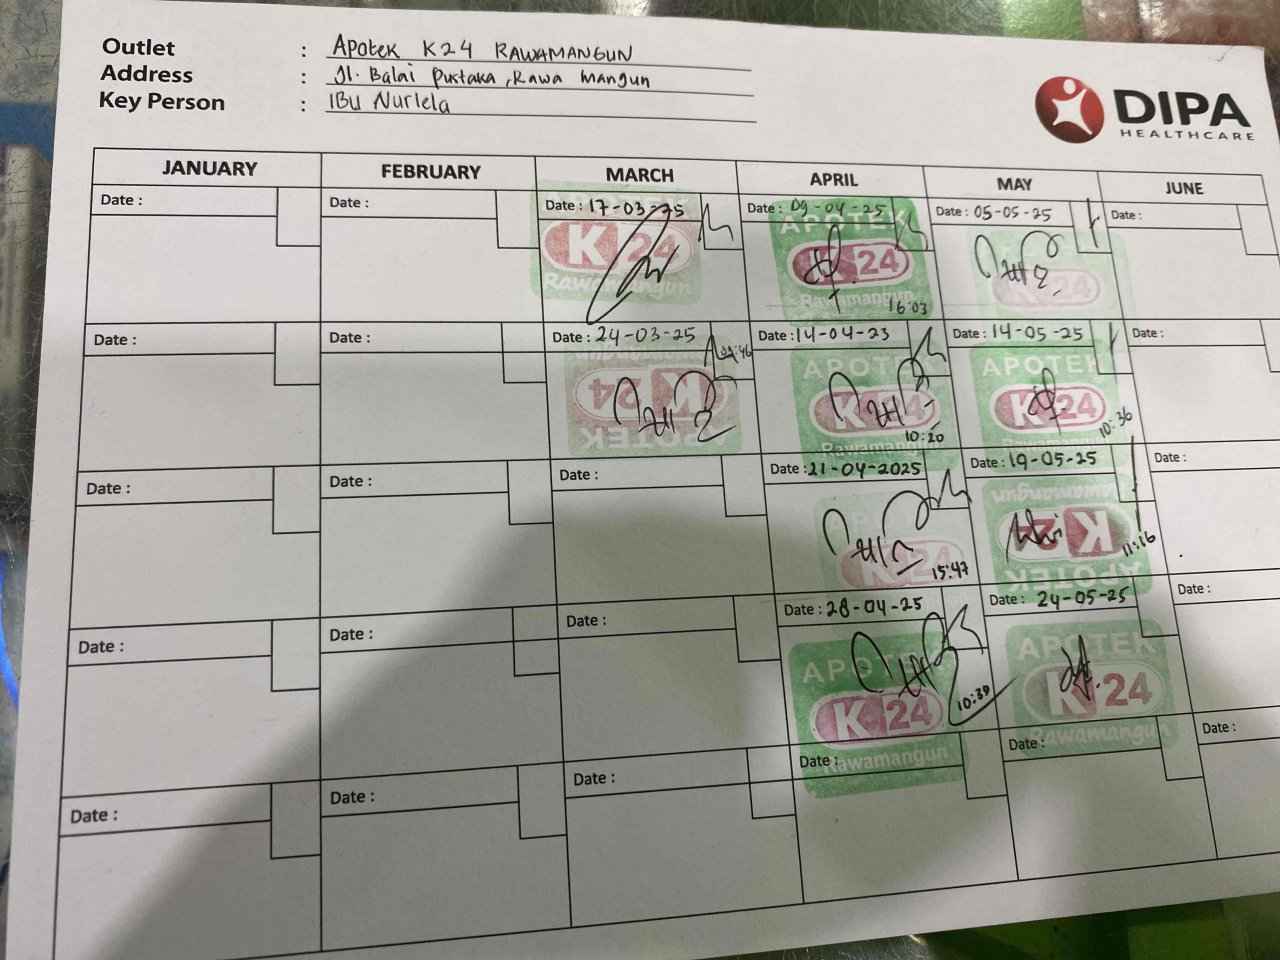 Outlet : Apotek K24 RAWAMANGUN
Address : Jl. Balai Pustaka, Rawa Mangun
Key Person : IBU Nurlela
DIPA
HEALTHCARE
JANUARY FEBRUARY MARCH APRIL MAY JUNE
Date : Date : Date : 17-03-25 Date : 09-04-25 Date : 05-05-25 Date :
K 24 APOTEK K 24 K 24
Rawamangun Rawamangun 16:03
Date : Date : Date : 24-03-25 Date : 14-04-23 Date : 14-05-25 Date :
K 24 APOTEK APOTEK K 24 APOTEK K 24
Rawamangun 10:20 10:36
Date : Date : Date : Date : 21-04-2025 Date : 19-05-25 Date :
K 24 15:47 Rawamangun K 24 APOTEK 11:16
Date : Date : Date : Date : 28-04-25 Date : 24-05-25 Date :
APOTEK K 24 10:39 APOTEK K 24
Rawamangun Rawamangun
Date : Date : Date : Date : Date : Date :